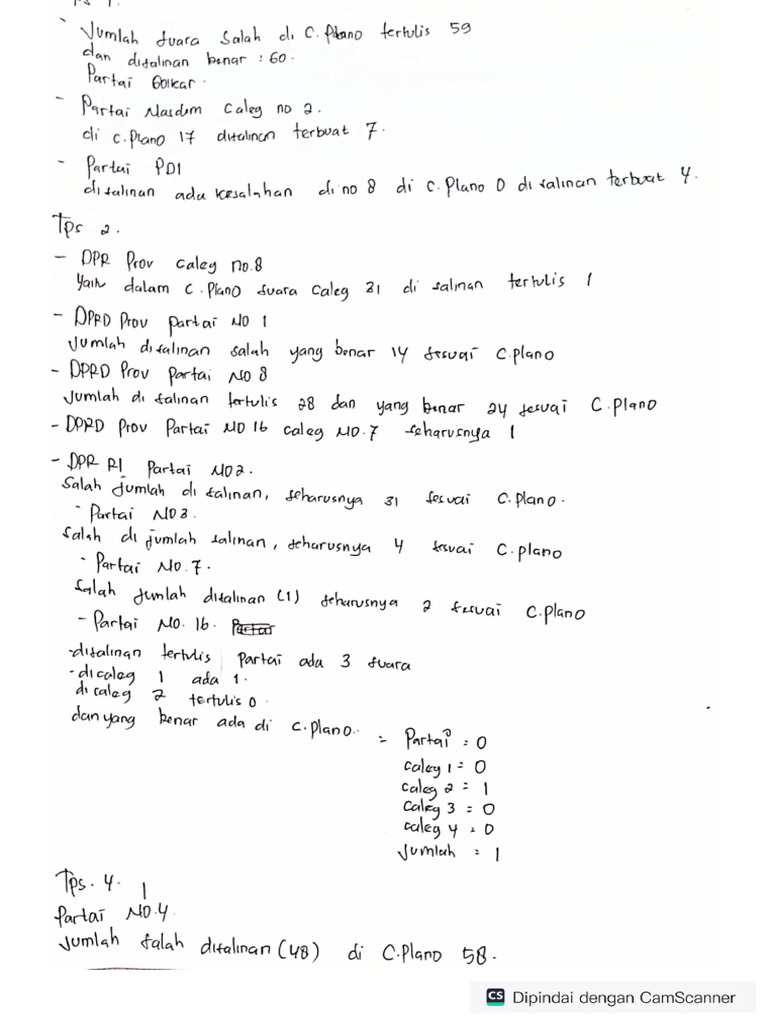 - Jumlah suara salah di C. Plano tertulis 59
dan disalinan benar : 60.
Partai Golkar.
- Partai Nasdem Caleg no 2.
di C.Plano 17 disalinan terbuat 7.
- Partai PDI
disalinan ada kesalahan di no 8 di C. Plano 0 di salinan terbuat 4.
Tps 2.
- DPR Prov caleg no.8
dalam C.Plano suara caleg 31 di salinan tertulis 1
- DPRD Prov partai NO 1
Jumlah disalinan salah yang benar 14 sesuai C.plano
- DPRD Prov Partai NO 8
Jumlah di salinan tertulis 28 dan yang benar 24 sesuai C.Plano
- DPRD Prov Partai NO 16 caleg NO.7 seharusnya 1
- DPR RI Partai NO2.
Salah jumlah di salinan, seharusnya 31 sesuai C.Plano.
- Partai NO3.
Salah di jumlah salinan, seharusnya 4 sesuai C.plano
- Partai NO.7.
Salah jumlah disalinan (1) seharusnya 2 sesuai C.plano
- Partai NO.16.
-disalinan tertulis partai ada 3 suara
-dicaleg 1 ada 1.
di caleg 2 tertulis 0.
dan yang benar ada di C.plano..
= Partai = 0
caleg 1 = 0
caleg 2 = 1
caleg 3 = 0
caleg 4 = 0
Jumlah = 1
Tps. 4. 1
Partai NO.4.
Jumlah salah disalinan (48) di C.Plano 58.
CS Dipindai dengan CamScanner